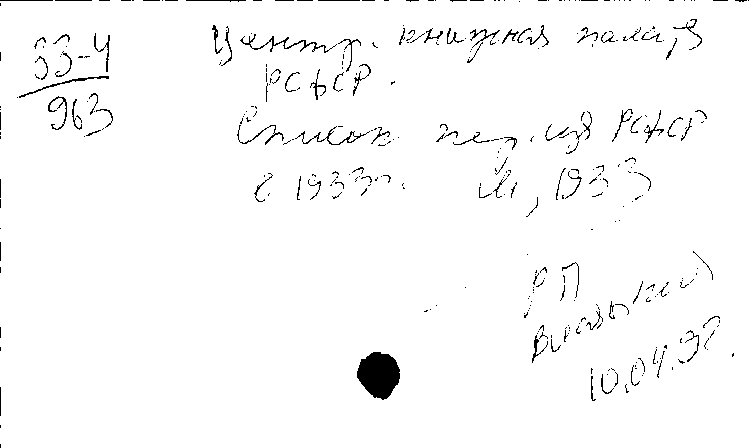 33-4
963
Центр. книжная палата
РСФСР.
Список пер. изд РСФСР
с 1933г. М, 1933
РП
10.04.92.